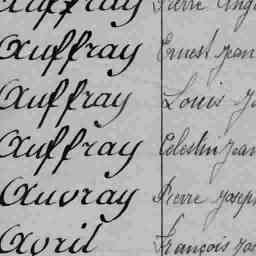 Auffray Pierre
Auffray Ernest Jean
Auffray Louis
Auffray Célestin Jean
Auvray Pierre Joseph
Avril François